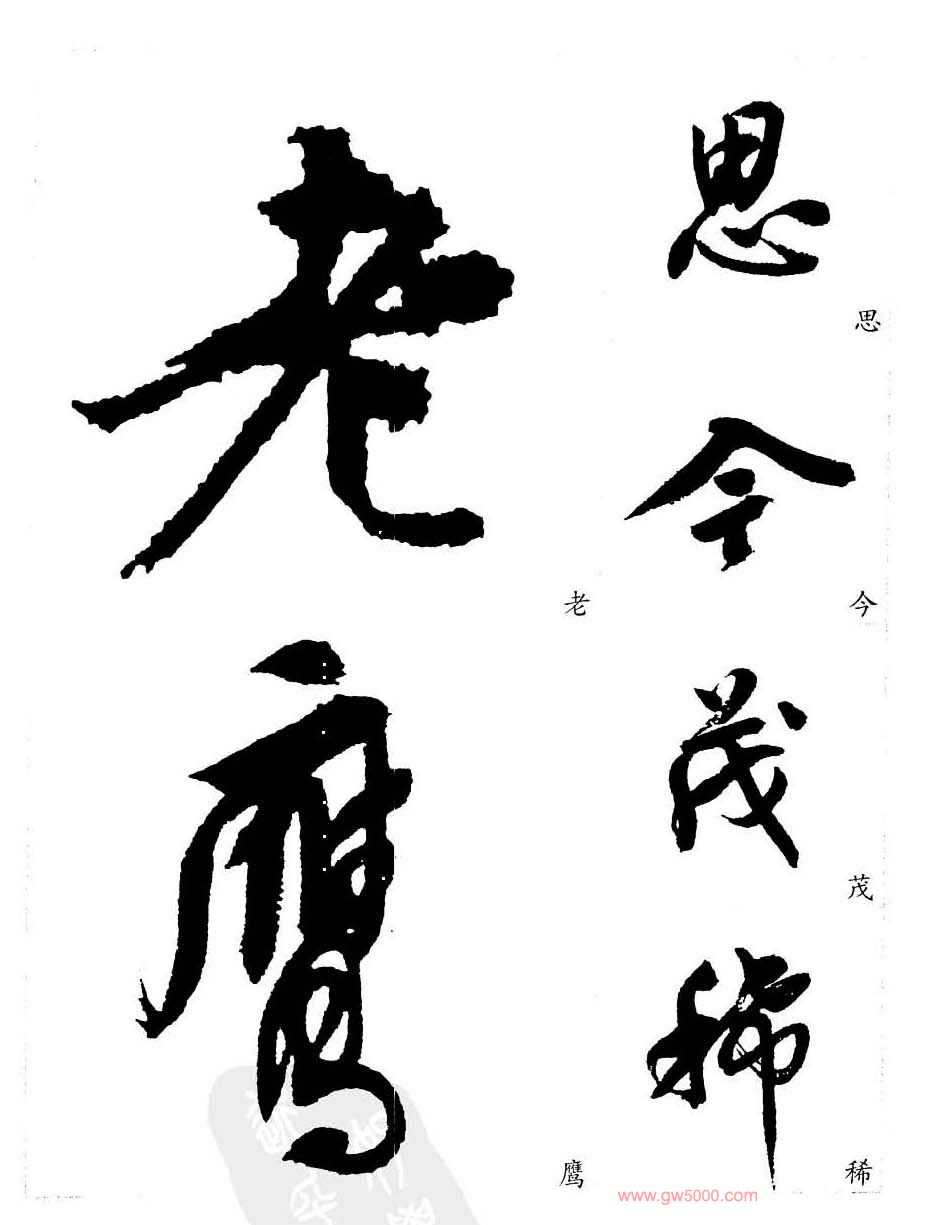 思今茂稀
思
今
茂
稀
老鹰
老
鹰
www.gw5000.com